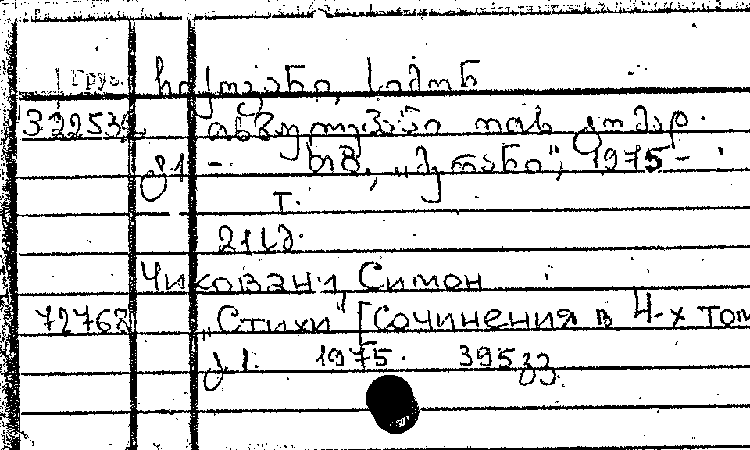 Груз. ჩიქოვანი, სიმონ
322532 თხზულებანი ოთხ ტომად.
ტ.1 – თბ., „მერანი“, 1975 –
т.
21 სმ.
Чиковани, Симон
72768 „Стихи“ [Сочинения в 4-х том
ტ.1. 1975. 395 გვ.